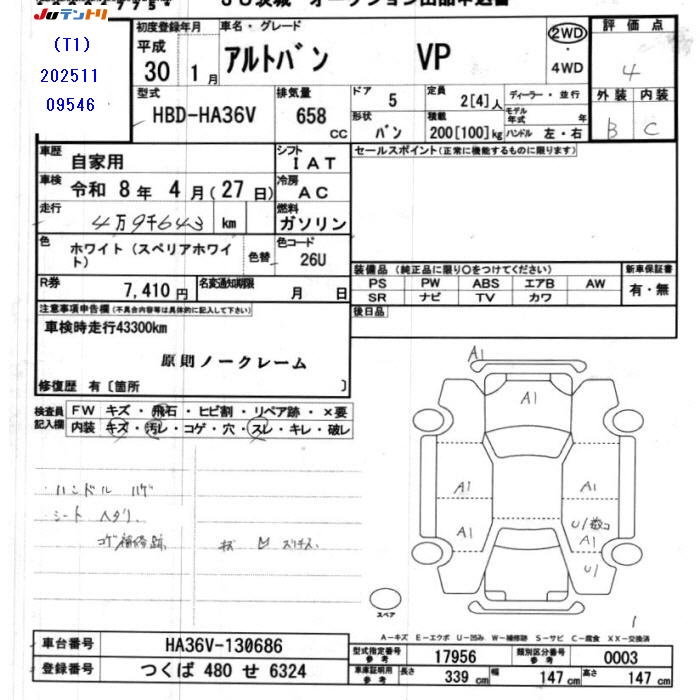 JU茨城 オークション出品申込書
JUテントリ
(T1)
202511
09546
初度登録年月
平成
30 1 月
車名・グレード
アルトバン VP
2WD
・
4WD
評価点
4
外装 内装
B C
型式
HBD-HA36V
排気量
658 CC
ドア
5
形状
バン
定員
2[4]人
積載
200[100]kg
ディーラー・並行
モデル年式 年
ハンドル 左・右
車歴
自家用
車検
令和 8 年 4 月(27 日)
走行
4万9千643 km
シフト
IAT
冷房
AC
燃料
ガソリン
セールスポイント(正常に機能するものに限ります)
色
ホワイト(スペリアホワイト)
色替
色コード
26U
R券
7,410 円
名変通知期限
月 日
装備品 (純正品に限り○をつけてください)
PS PW ABS エアB AW
SR ナビ TV カワ
新車保証書
有・無
後日品
注意事項申告欄(不具合内容等は具体的に記入して下さい)
車検時走行43300km
原則ノークレーム
修復歴 有〔箇所 〕
検査員記入欄
FW キズ・飛石・ヒビ割・リペア跡・×要
内装 キズ・汚レ・コゲ・穴・スレ・キレ・破レ
・ハンドル ハゲ
・シート ヘタリ、
コゲ補修跡
A1
A1
A1
A1
A1
U1数コ
A1
U1
スペア
1
A-キズ E-エクボ U-凹み W-補修跡 S-サビ C-腐食 XX-交換済
車台番号
HA36V-130686
登録番号
つくば 480 せ 6324
型式指定番号 参考
17956
類別区分番号 参考
0003
車庫証明用 参考
長さ 339 cm
幅 147 cm
高さ 147 cm